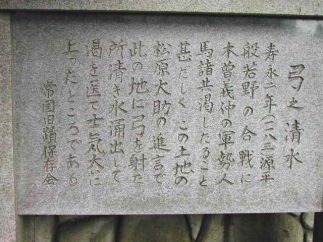 弓之清水
寿永二年(一一八三)源平
般若野の合戦に
木曽義仲の軍勢人
馬諸共渇したること
甚だしくこの土地の
松原大助の進言で
此の地に弓を射た
所清き水涌出して
渇を医て士気大に
上ったところである
常国旧蹟保存会